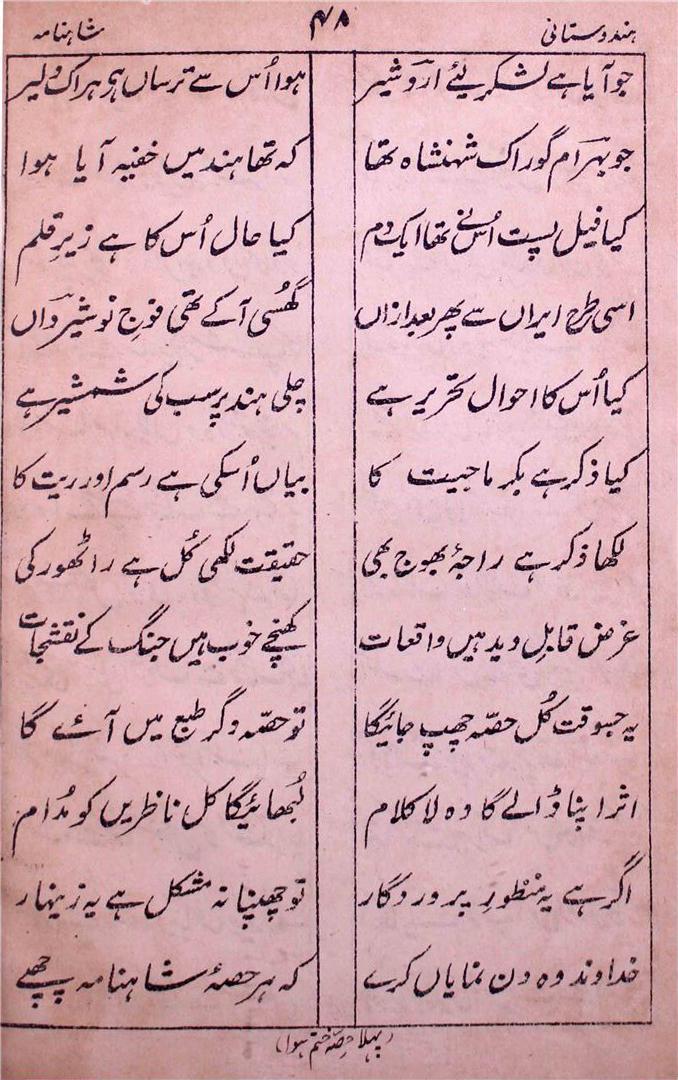 ہندوستانی ۴۸ شاہنامہ
جو آیا ہے لشکر لیئے اردشیر ہوا اُس سے ترساں ہی ہر اک دلیر
جو بہرام گور اک شہنشاہ تھا کہ تھا ہند میں خفیہ آیا ہوا
کیا فیل پست اُسنے تھا ایک دم کیا حال اُس کا ہے زیرِ قلم
اسی طرح ایراں سے پھر بعد ازاں گھُسی آکے تھی فوجِ نوشیرواں
کیا اُس کا احوال تحریر ہے چلی ہند پر سب کی شمشیر ہے
کیا ذکر ہے بکرماجیت کا بیاں اُسکی ہے رسم اور ریت کا
لکھا ذکر ہے راجۂ بھوج بھی حقیقت لکھی کُل ہے راٹھور کی
غرض قابلِ دید ہیں واقعات کھنچے خوب ہیں جنگ کے نقشجات
یہ جسوقت کُل حصّہ چھپ جائیگا تو حصّہ دگر طبع میں آئے گا
اثر اپنا ڈالے گا وہ لا کلام لُبھائیگا کل ناظریں کو مُدام
اگر ہے یہ منظورِ پروردگار تو چھپنا نہ مشکل ہے یہ زینہار
خداوند وہ دن نمایاں کرے کہ ہر حصۂ شاہنامہ چھپے
(پہلا حصّہ ختم ہوا)